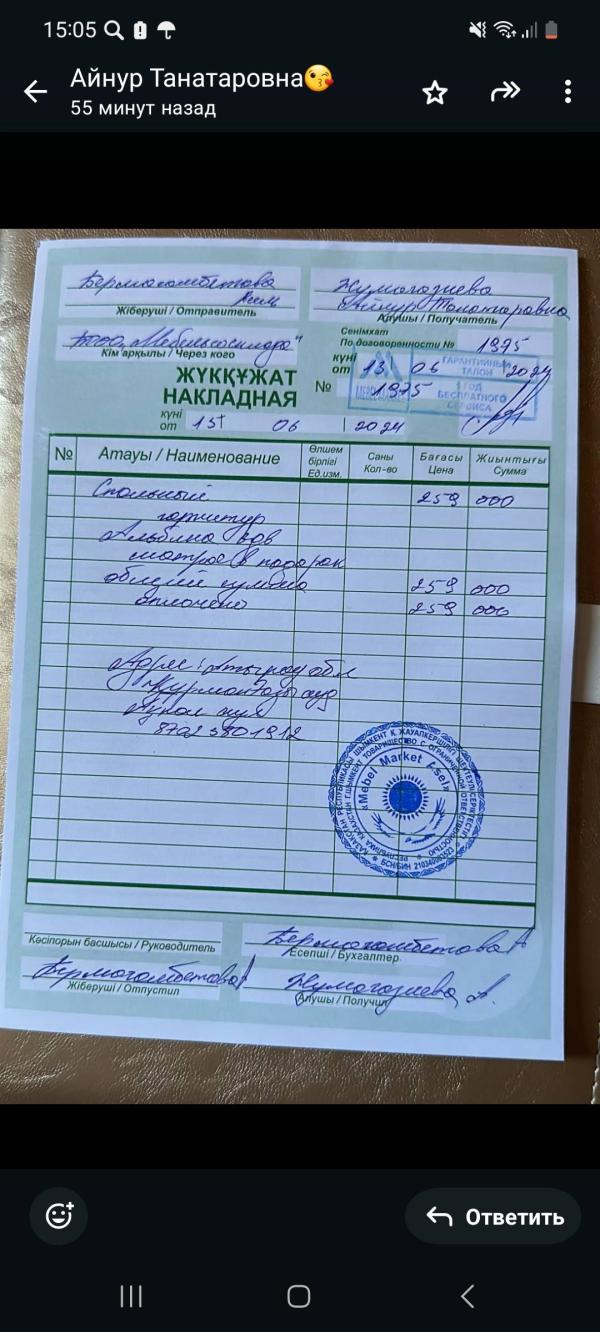 15:05
Айнур Танатаровна😘
55 минут назад
Бермагамбетова
Асем
Жіберуші / Отправитель
Жумагазиева
Айнур Танатаровна
Алушы / Получатель
ТОО "Мебель
Кім арқылы / Через кого
Сенімхат
По договоренности № 1975
күні
от 13 06 2024
ГАРАНТИЙНЫЙ
ТАЛОН
1 ГОД
БЕСПЛАТНОГО
СЕРВИСА
ЖҮКҚҰЖАТ
НАКЛАДНАЯ
№ 1975
күні
от 13 06 2024
№
Атауы / Наименование
Өлшем бірлігі
Ед.изм.
Саны
Кол-во
Бағасы
Цена
Жиынтығы
Сумма
Спальный 259 000
гарнитур
Альбина
матрас в подарок
общий сумма 259 000
оплачено 259 000
Адрес: Атырау обл
Курмангазы ауд
аул
«Mebel Market Asel»
Кәсіпорын басшысы / Руководитель
Бермагамбетова А
Есепші / Бухгалтер
Бермагамбетова А
Жіберуші / Отпустил
Жумагазиева А.
Алушы / Получил
Ответить